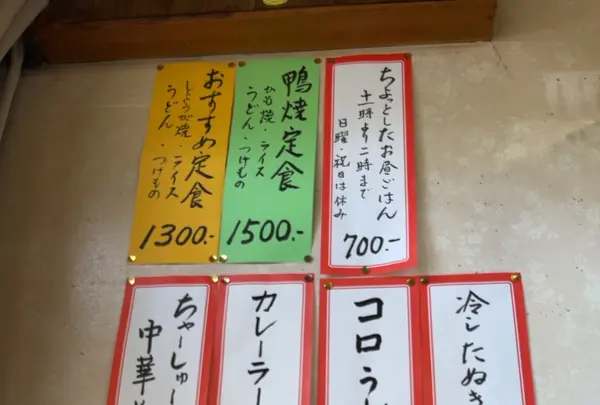 ちょっとしたお昼ごはん
十一時より二時まで
日曜・祝日は休み
700.-
鴨焼定食
かも焼・ライス
うどん・つけもの
1500.-
おすすめ定食
しょうが焼・ライス
うどん・つけもの
1300.-
冷したぬき
コロう
カレーラー
ちゃーしゅー
中華